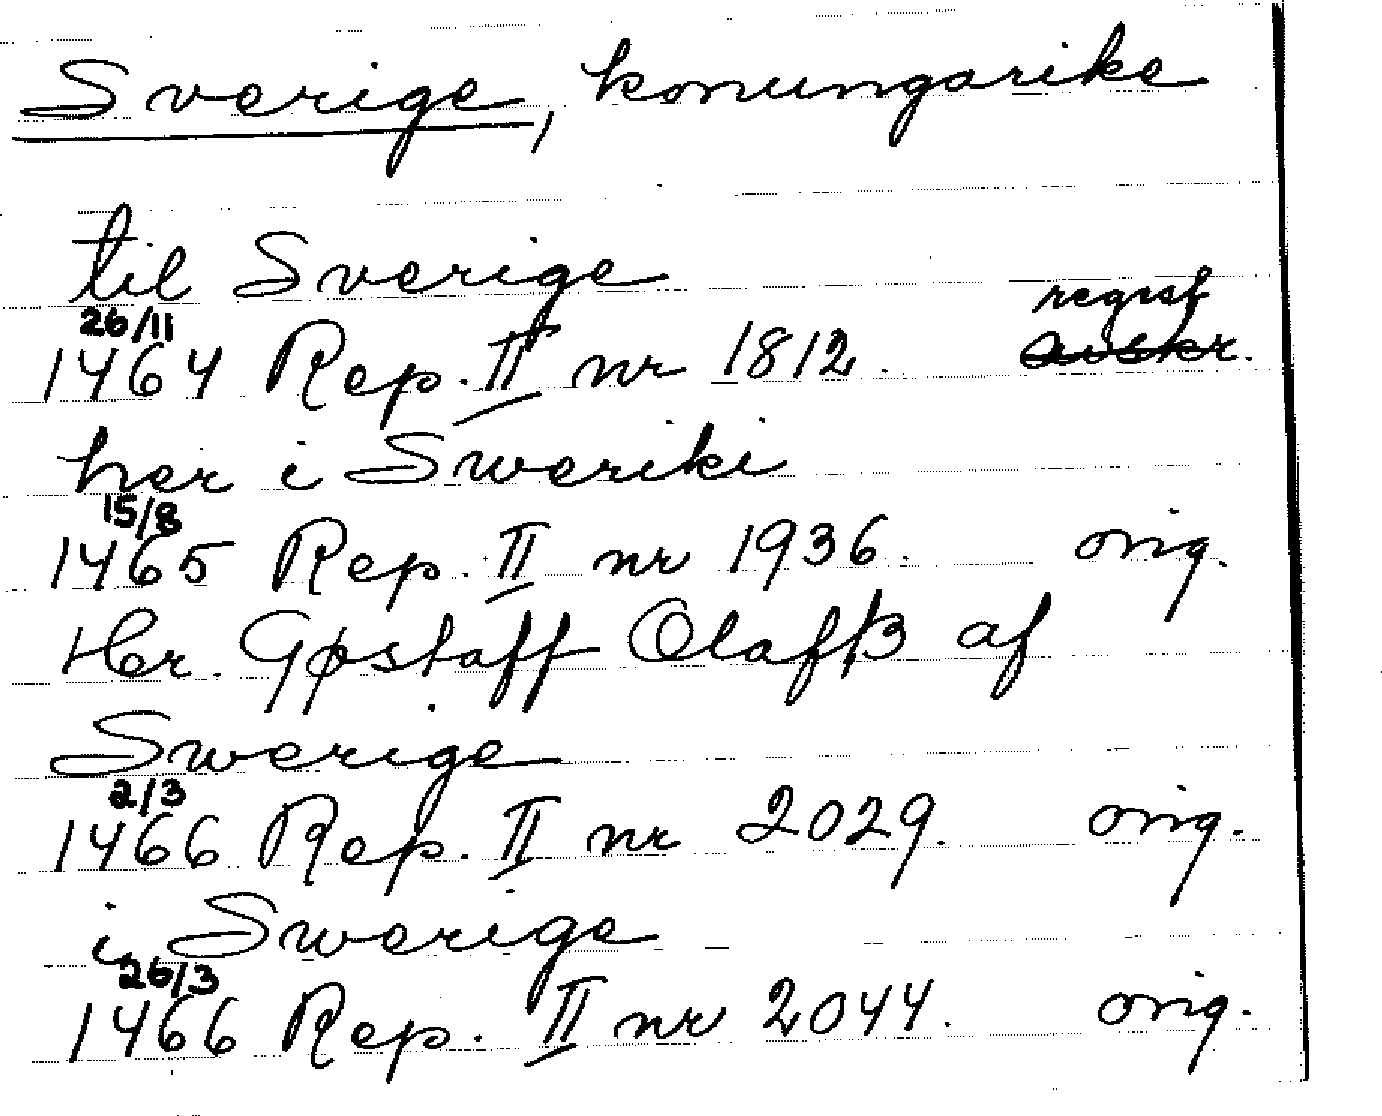 Sverige, konungarike
til Sverige
26/11 regist
1464 Rep. II nr 1812. avskr.
her i Sweriki
15/8
1465 Rep. II nr 1936. orig.
Her. Gøstaff Olaffß af
Swerige
2/3
1466 Rep. II nr 2029. orig.
i Swerige
26/3
1466 Rep. II nr 2044. orig.